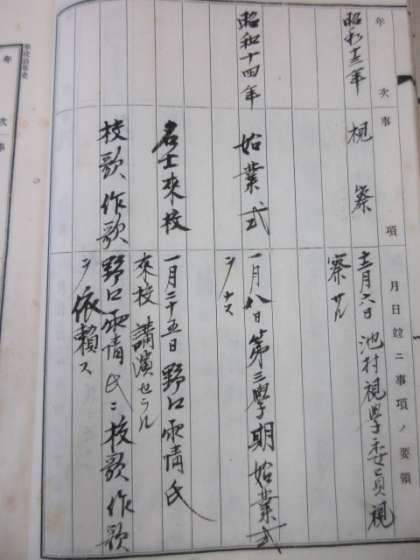 年次 事項 月日竝ニ事項ノ要領
昭和十三年 視察 十二月六日池村視學委員視
察サル
昭和十四年 始業式 一月八日第三學期始業式
ヲナス
名士來校 一月二十五日野口雨情氏
來校講演セラル
校歌作歌 野口雨情氏ニ校歌作歌
ヲ依頼ス
年次 事